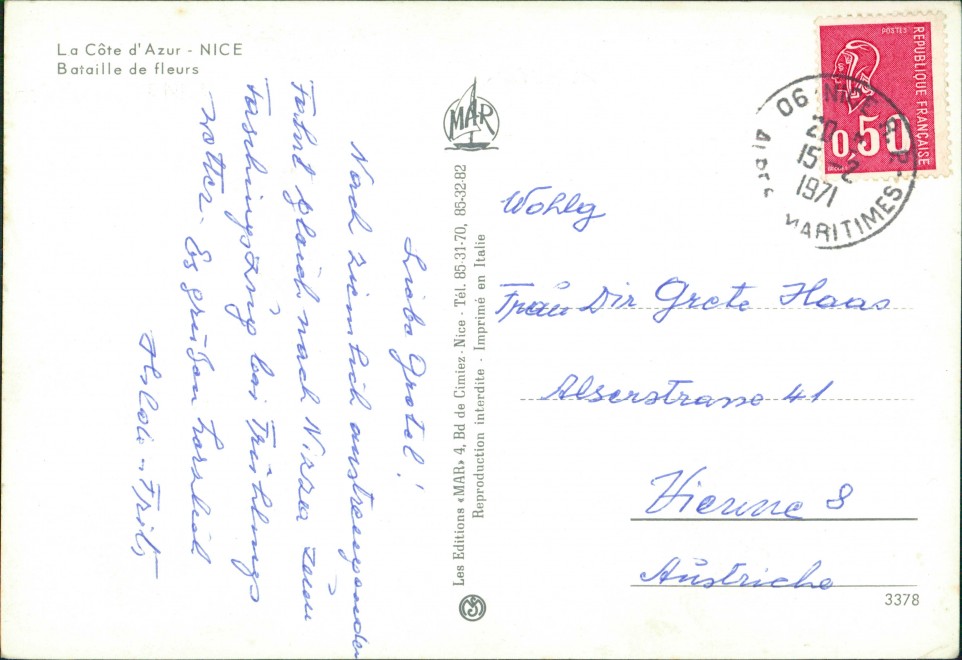 La Côte d'Azur - NICE
Bataille de fleurs
MAR
Les Editions «MAR» 4, Bd de Cimiez - Nice - Tél. 85-31-70, 85-32-82
Reproduction interdite - Imprimé en Italie
POSTES
REPUBLIQUE FRANÇAISE
0,50
06 NICE R.P.
20
15-2
1971
ALPES MARITIMES
Liebe Gretel!
Nach ziemlich anstrengender
Fahrt gleich nach Nizza zum
Faschingszug bei Frühlings
wetter. Es grüßen herzlich
Fritz
Wohlg
Frau Dir Grete Haas
Alserstrasse 41
Vienne 8
Autriche
3378